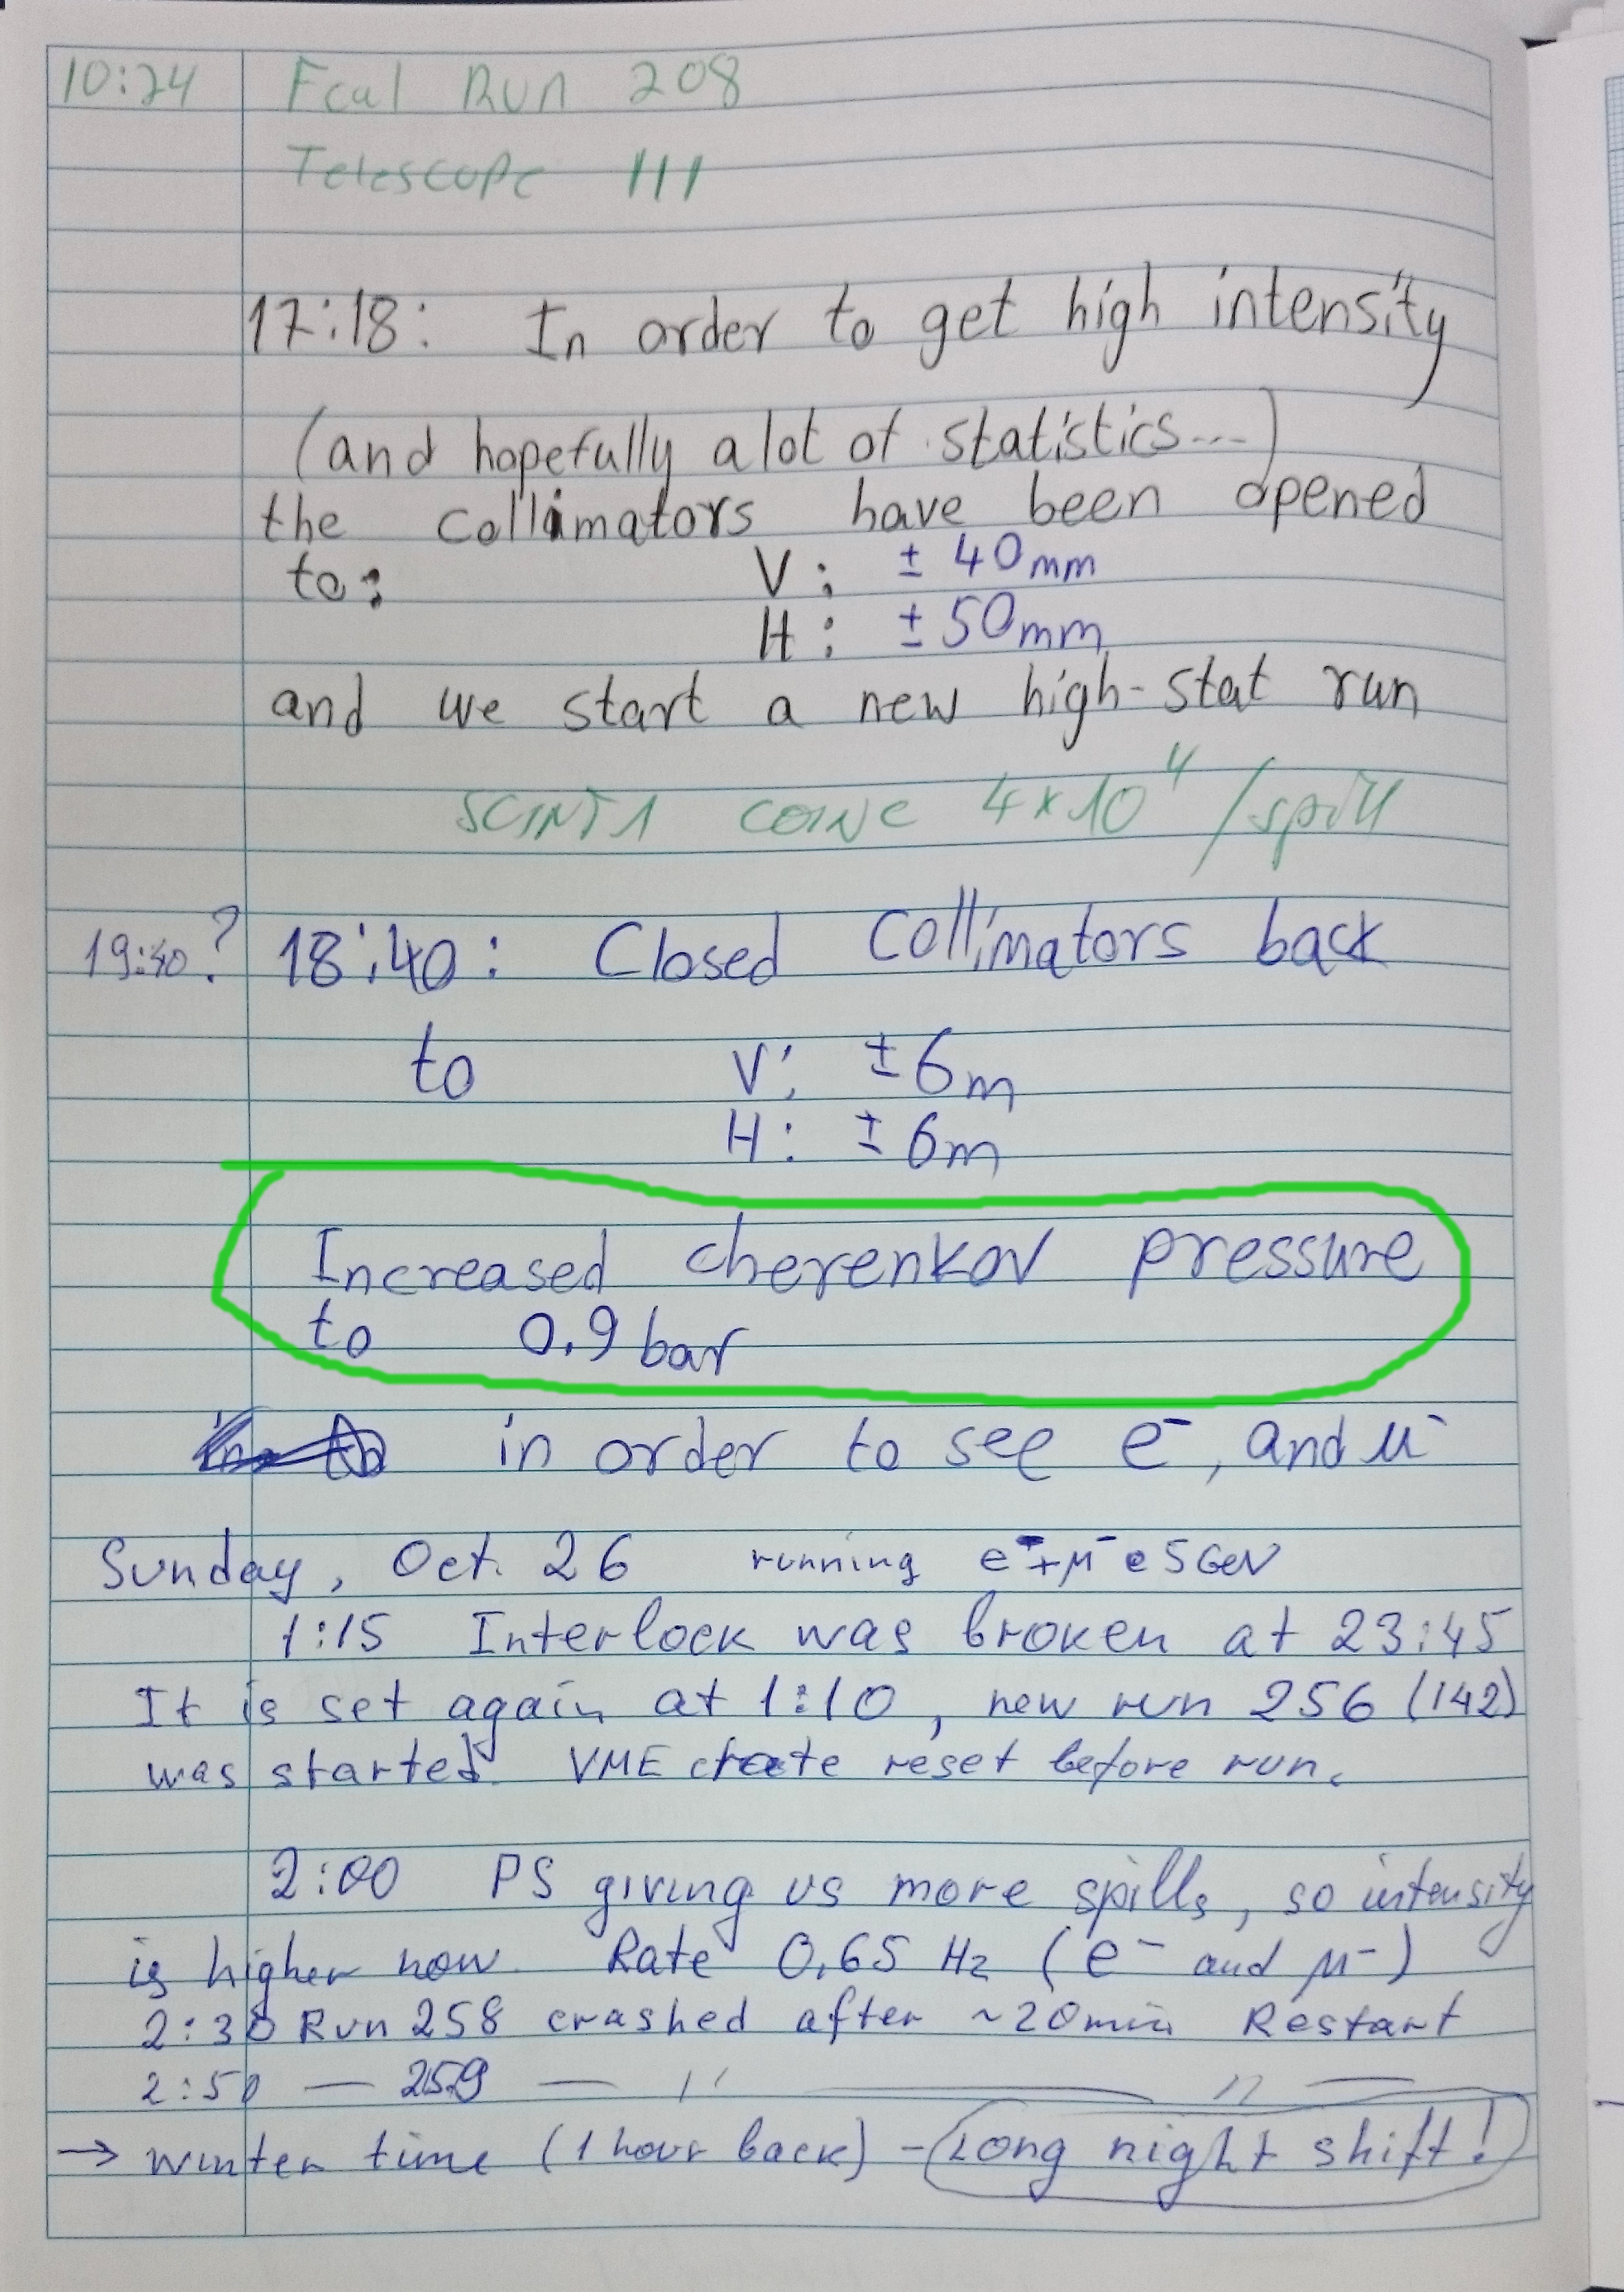 10:24 Fcal Run 208
Telescope 111
17:18: In order to get high intensity
(and hopefully a lot of statistics...)
the collimators have been opened
to: V: ± 40mm
H: ± 50mm
and we start a new high-stat run
SCINT1 COINC 4x10⁴ /spill
19:40? 18:40: Closed Collimators back
to V: ±6m
H: ±6m
Increased cherenkov pressure
to 0.9 bar
in order to see e⁻, and μ⁻
Sunday, Oct. 26 running e⁻+μ⁻ @ 5 GeV
1:15 Interlock was broken at 23:45
It is set again at 1:10, new run 256 (142)
was started. VME crate reset before run.
2:00 PS giving us more spills, so intensity
is higher now. Rate 0,65 Hz (e⁻ and μ⁻)
2:30 Run 258 crashed after ~20min Restart
2:50 — 259 — 〃 — 〃 —
→ winter time (1 hour back) - Long night shift!